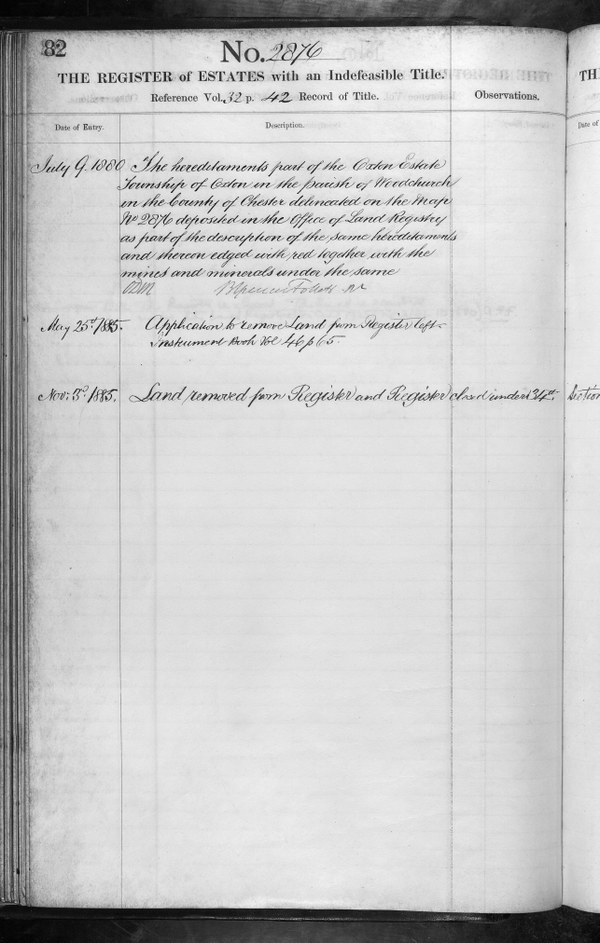 82
No. 2876
THE REGISTER of ESTATES with an Indefeasible Title.
Reference Vol. 32 p. 42 Record of Title.
Observations.
Date of Entry.
Description.
July 9. 1880 The hereditaments part of the Oxton Estate
Township of Oxton in the parish of Woodchurch
in the County of Chester delineated on the Map
No 2876 deposited in the Office of Land Registry
as part of the description of the same hereditaments
and thereon edged with red together with the
mines and minerals under the same
May 25th 1885. Application to remove Land from Register left
Instrument Book Vol 46 p 65.
Nov: 3rd 1885. Land removed from Register and Register closed under 34th Section
TH
Date of